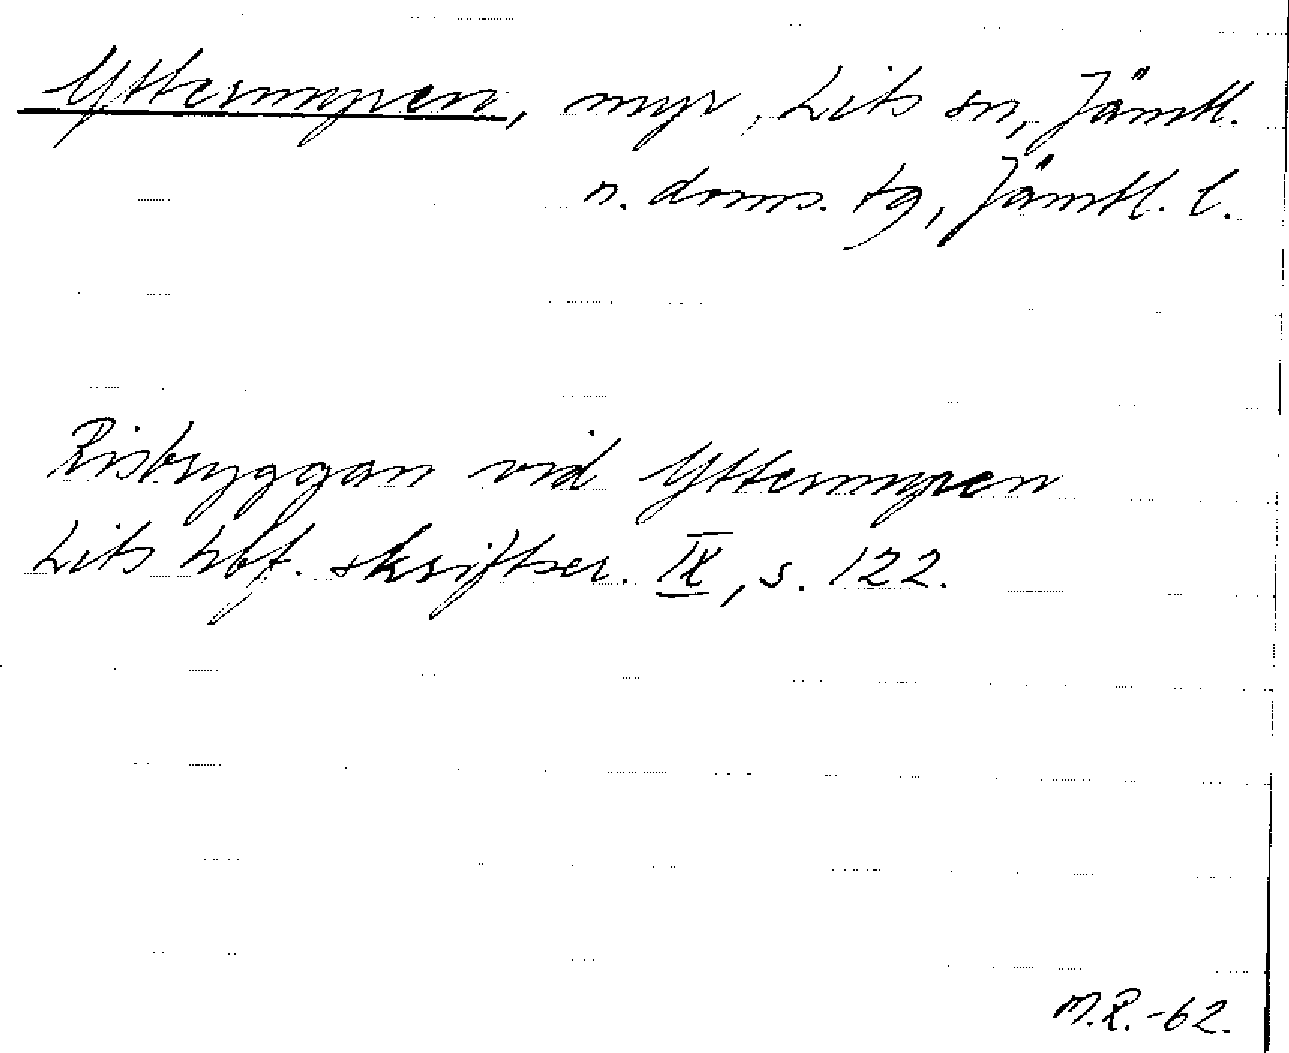 Yttermyren, myr, Lits sn, Jämtl.
n. doms. tg, Jämtl. l.
Risbryggan vid Yttermyren
Lits hbf. skriftser. IX, s. 122.
M.R. -62.